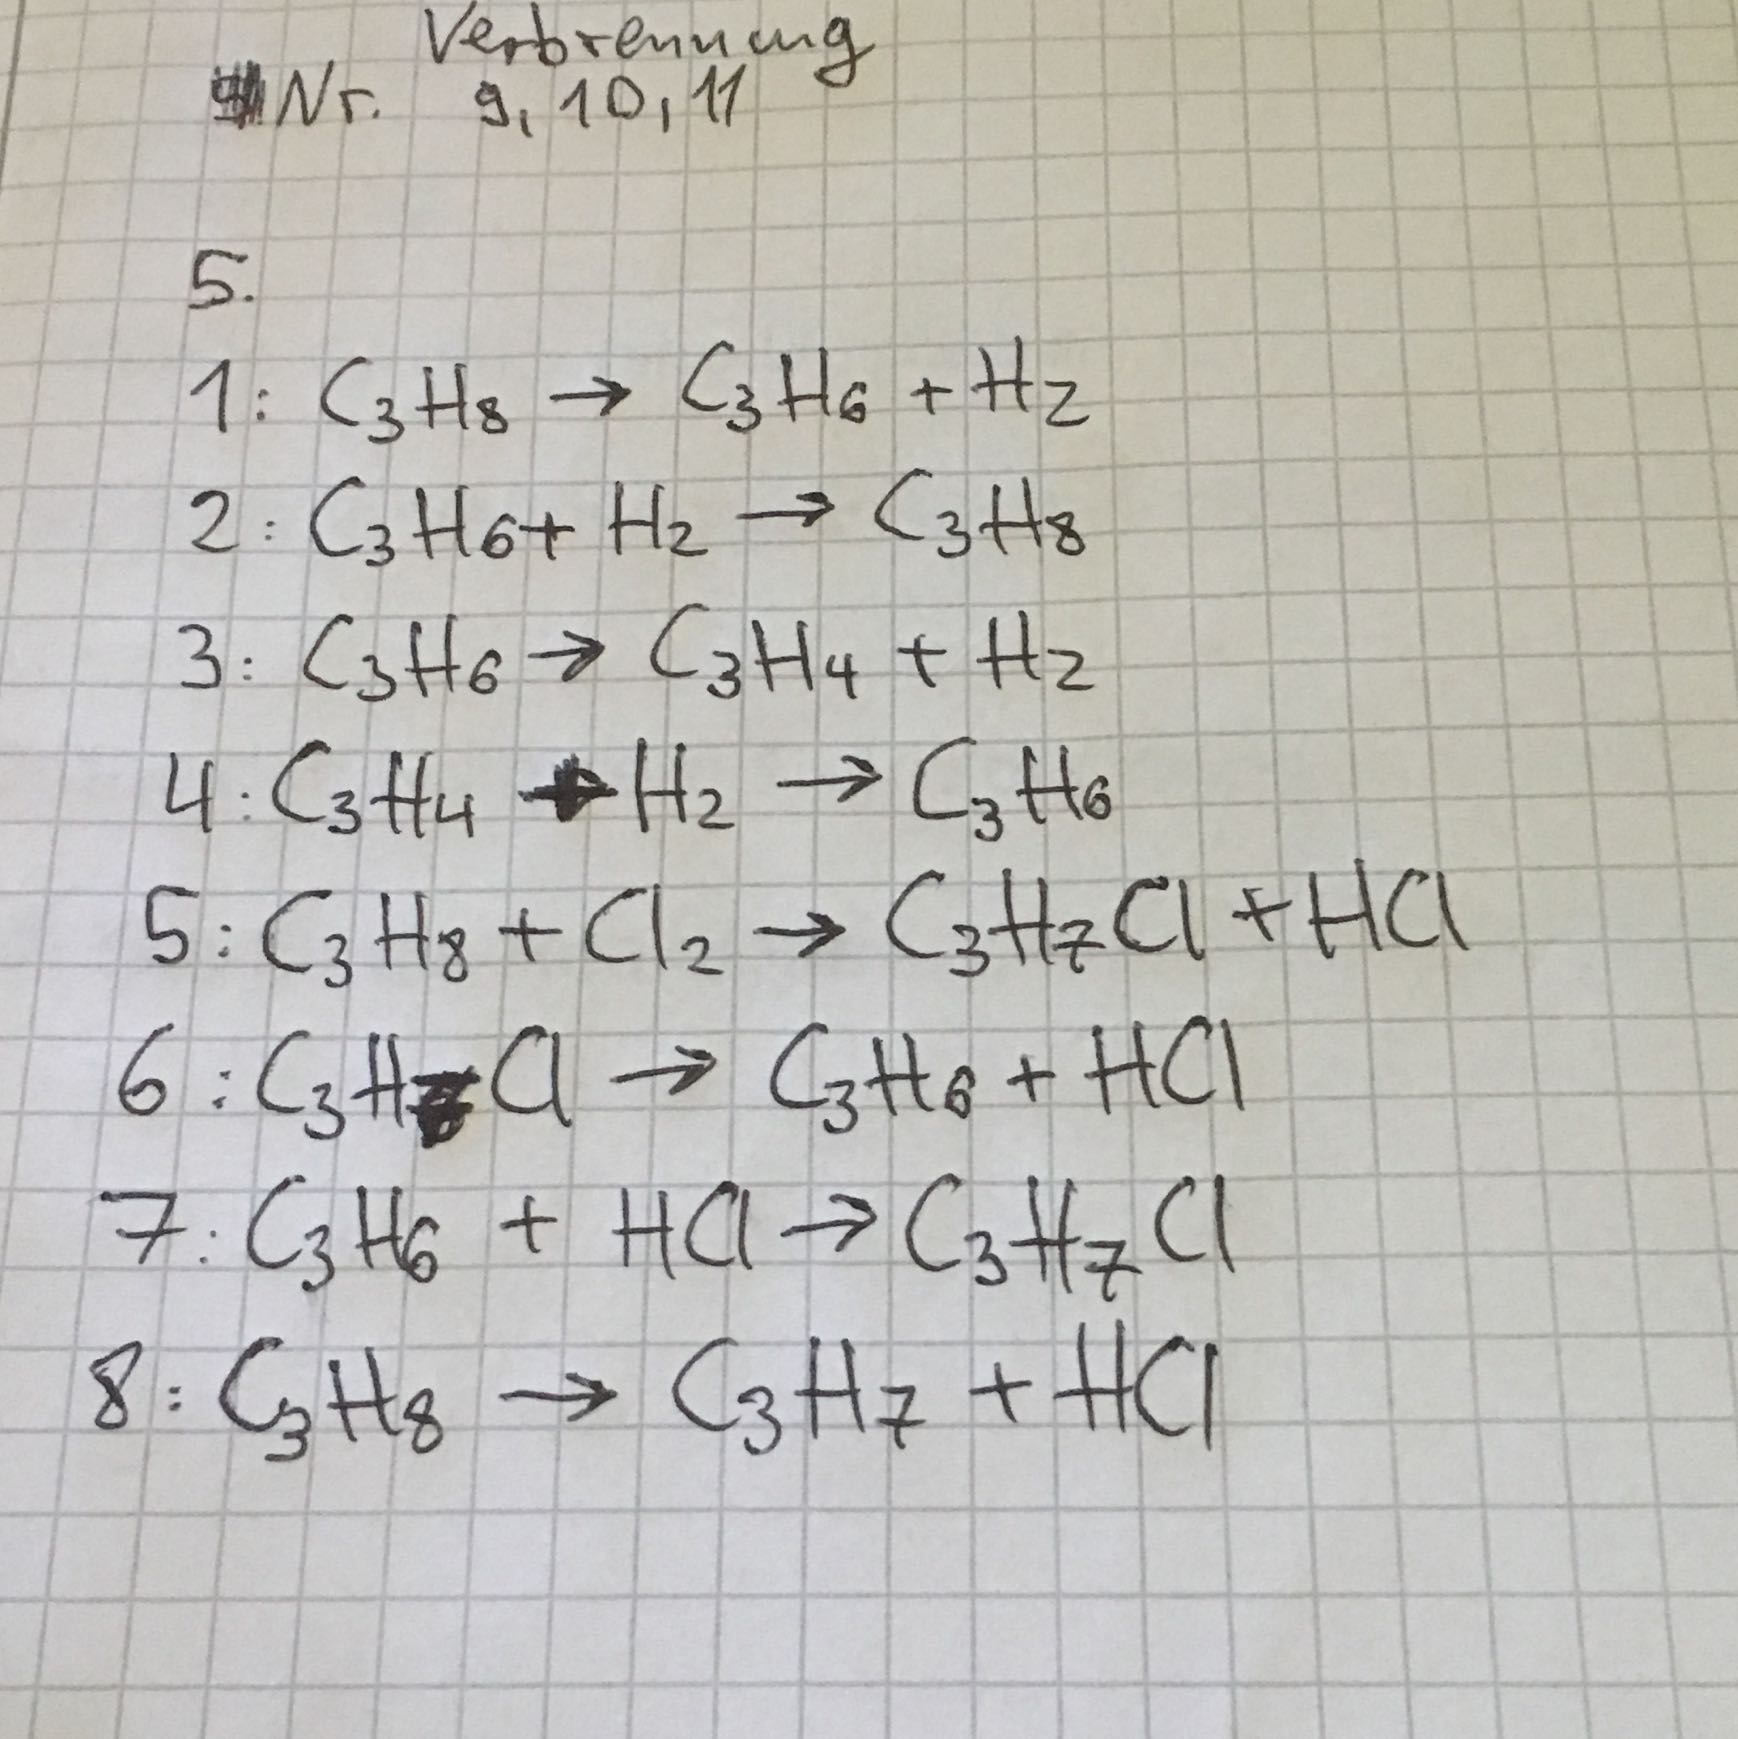 Verbrennung
Nr. 9, 10, 11
5.
1: C₃H₈ → C₃H₆ + H₂
2: C₃H₆ + H₂ → C₃H₈
3: C₃H₆ → C₃H₄ + H₂
4: C₃H₄ + H₂ → C₃H₆
5: C₃H₈ + Cl₂ → C₃H₇Cl + HCl
6: C₃H₇Cl → C₃H₆ + HCl
7: C₃H₆ + HCl → C₃H₇Cl
8: C₃H₈ → C₃H₇ + HCl